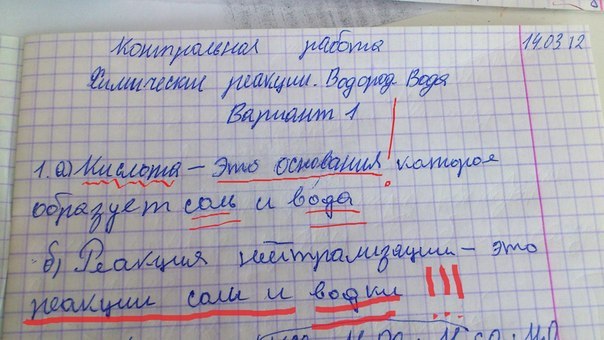 Контрольная работа 14.03.12
Химические реакции. Водород. Вода
Вариант 1
1. а) Кислота – это основания которое
образует соль и вода
б) Реакция нейтрализации – это
реакции соли и водки !!!